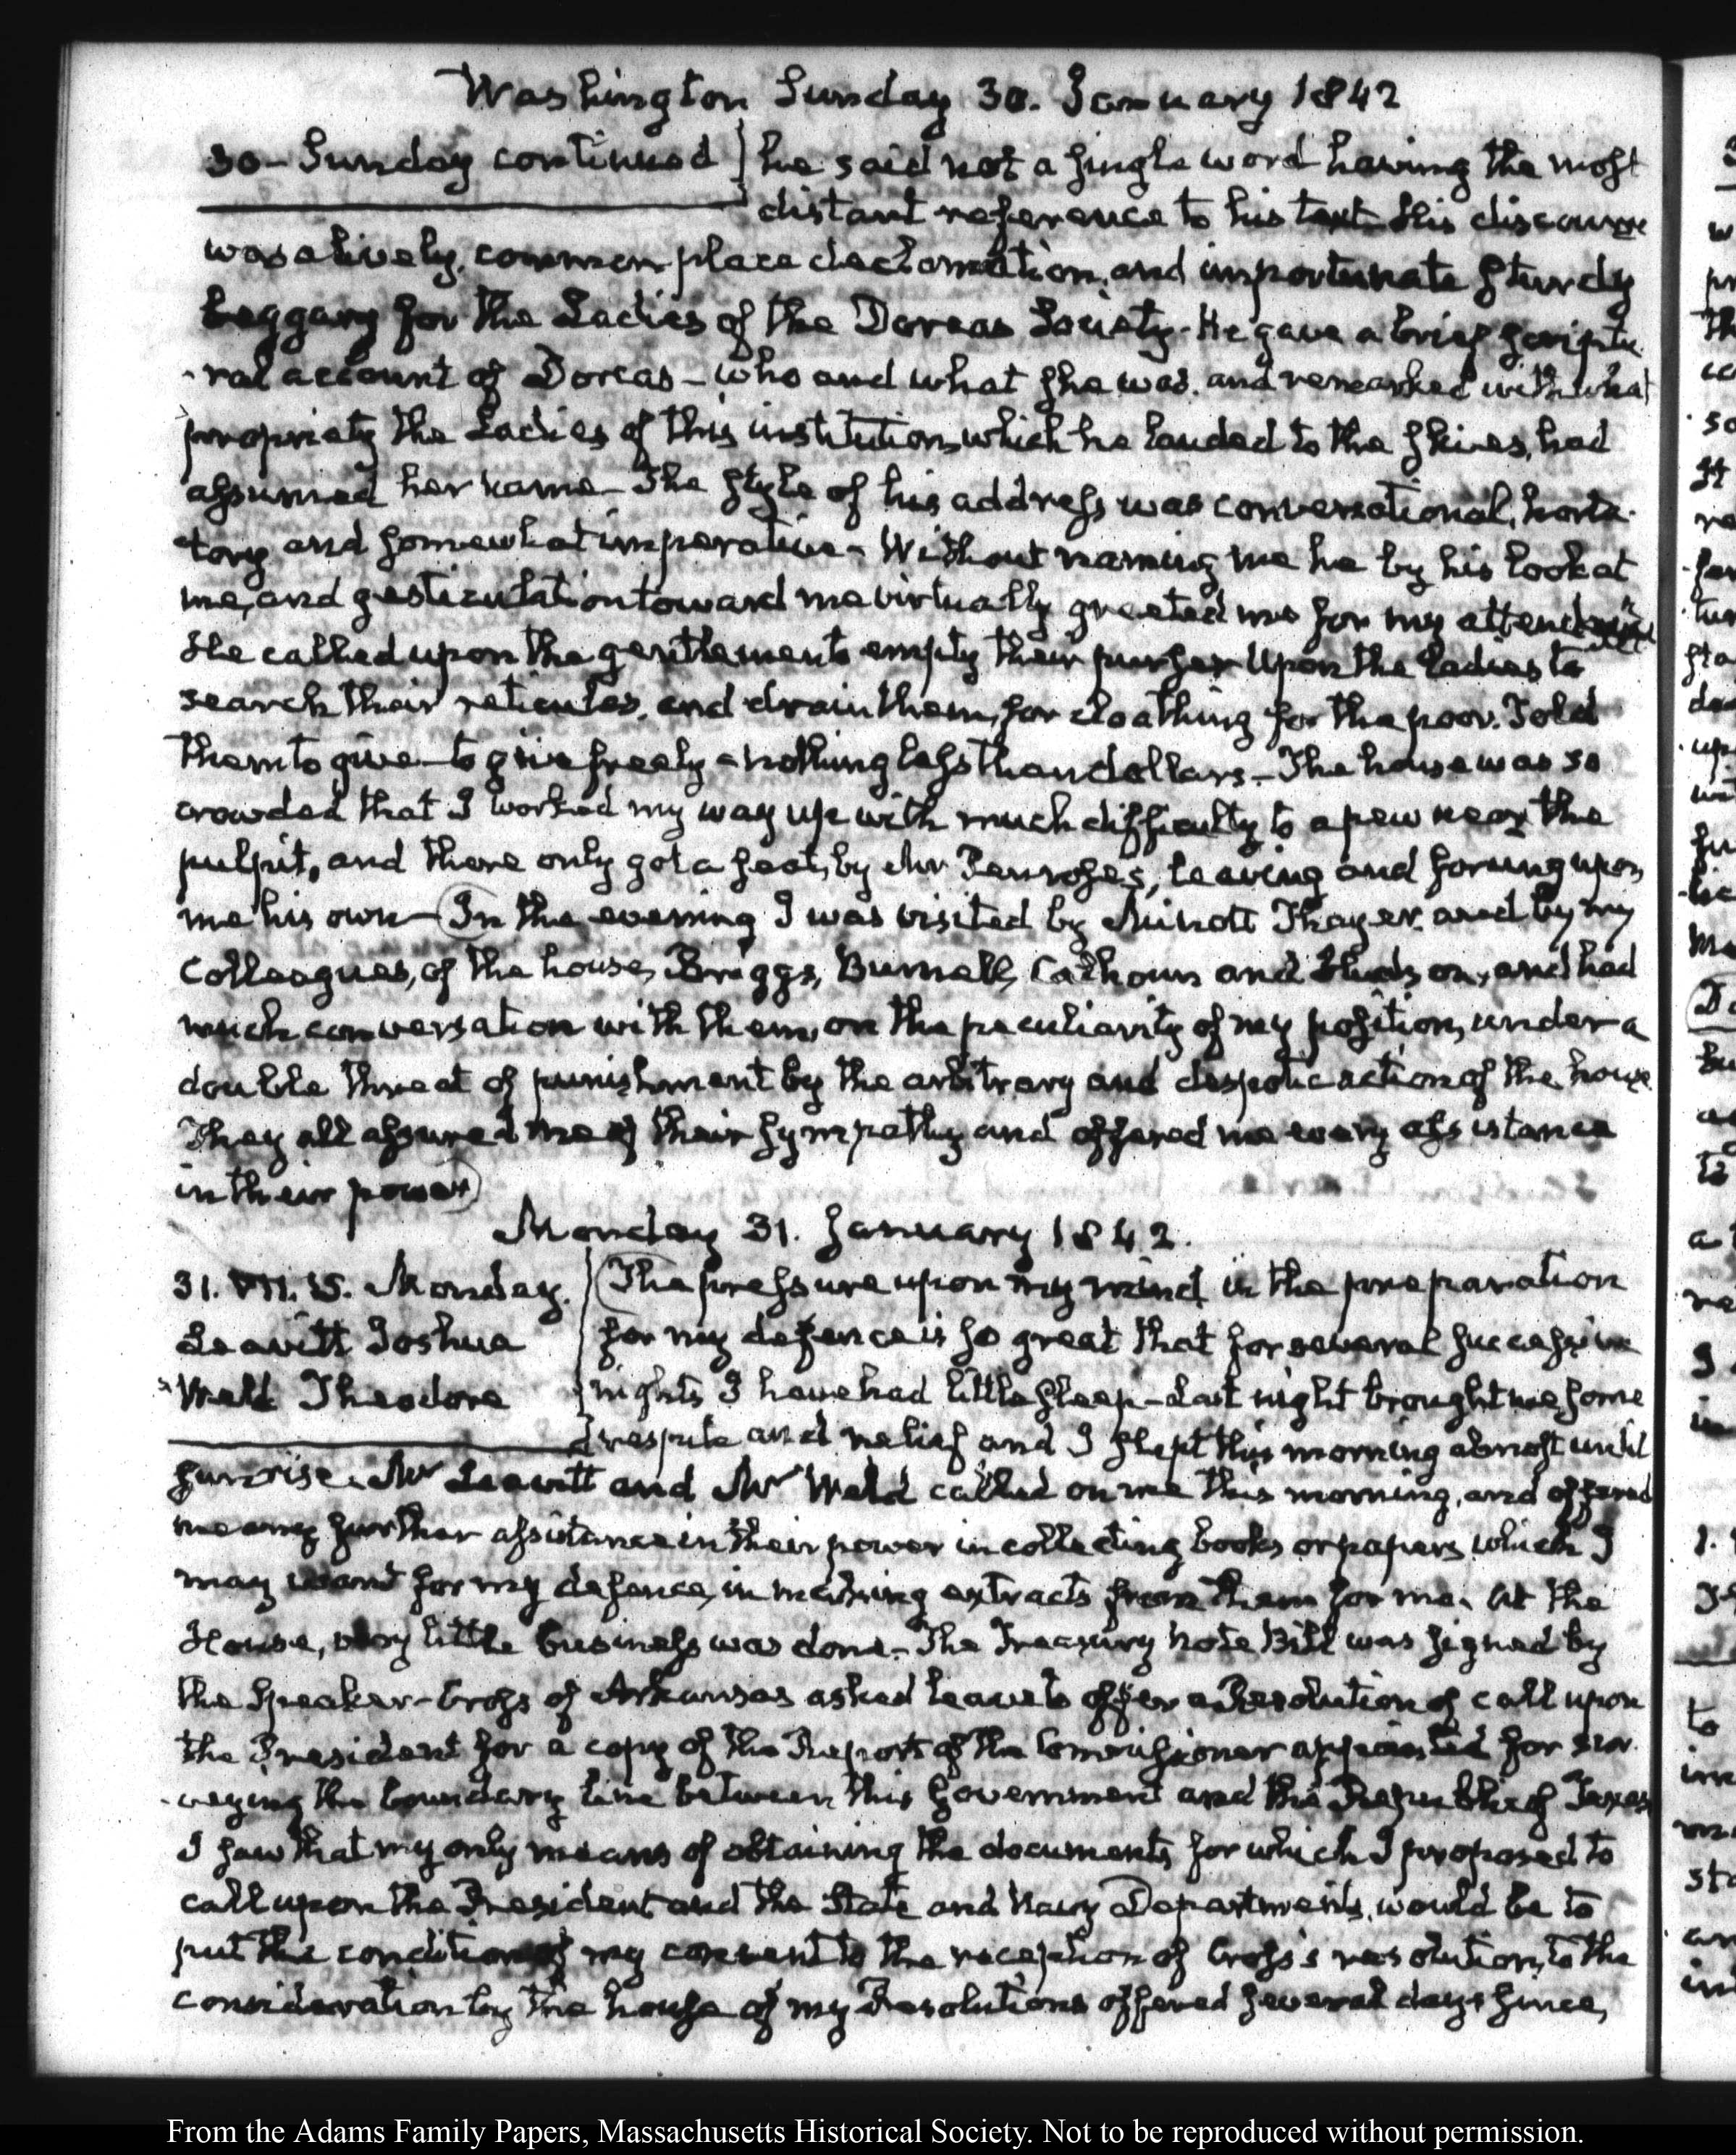 Washington Sunday 30. January 1842
30 - Sunday continued } he said not a single word having the most
distant reference to his text His discourse
was a lively, common place declamation, and importunate sturdy
beggary for the Ladies of the Dorcas Society. He gave a brief scriptu
-ral account of Dorcas - who and what she was. and remarked with what
propriety the Ladies of this institution, which he lauded to the skies, had
assumed her name - The style of his address was conversational, horta-
tory and somewhat imperative - Without naming me he by his look at
me, and gesticulation toward me virtually greeted me for my attendance
He called upon the gentlemen to empty their purses Upon the Ladies to
search their reticules, and drain them, for cloathing for the poor. Told
them to give - to give freely - nothing less than dollars. - The house was so
crowded that I worked my way up with much difficulty to a pew near the
pulpit, and there only got a seat, by Mr Penrose's, leaving and forcing upon
me his own - (In the evening I was visited by Minott Thayer. and by my
Colleagues, of the house, Briggs, Burnell, Calhoun and Hudson, and had
much conversation with them, on the peculiarity of my position, under a
double threat of punishment by the arbitrary and despotic action of the house
They all assured me of their sympathy and offered me every assistance
in their power)
Monday 31. January 1842.
31. VII. 15. Monday. } (The pressure upon my mind in the preparation
Leavitt Joshua } for my defence is so great that for several successive
Weld Theodore } nights I have had little sleep - Last night brought me some
respite and relief and I slept this morning almost until
sunrise. Mr Leavitt and Mr Weld called on me this morning, and offered
me any further assistance in their power in collecting books or papers which I
may want for my defence, in making extracts from them for me. At the
House, very little business was done. - The Treasury Note Bill was signed by
the Speaker - Cross of Arkansas asked leave to offer a Resolution of call upon
the President for a copy of the Report of the Commissioner appointed for sur-
-veying the boundary line between this Government and the Republic of Texas
I saw that my only means of obtaining the documents for which I proposed to
call upon the President and the State and Navy Departments, would be to
put the condition of my consent to the reception of Cross's resolution, to the
consideration by the house of my Resolutions offered several days since,
From the Adams Family Papers, Massachusetts Historical Society. Not to be reproduced without permission.